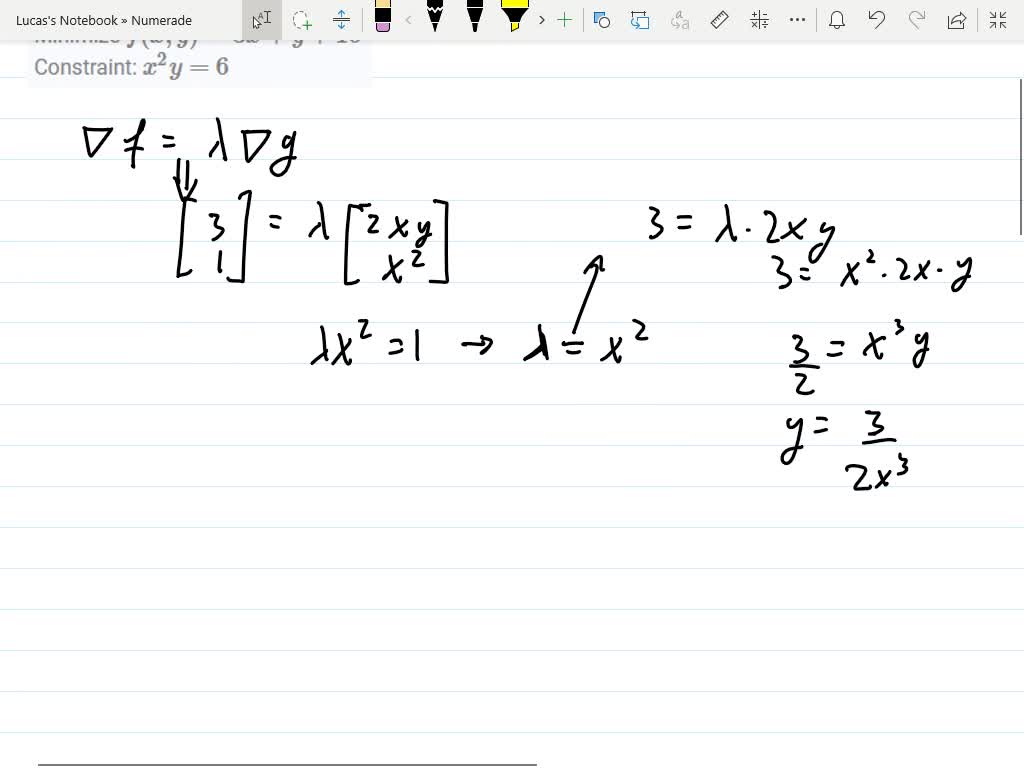 Lucas's Notebook » Numerade
Constraint: x²y = 6
∇f = λ∇g
⇓
[3 1] = λ [2xy x²]
3 = λ · 2xy
3 = x² · 2x · y
λx² = 1 → λ = x²
3/2 = x³y
y = 3/(2x³)